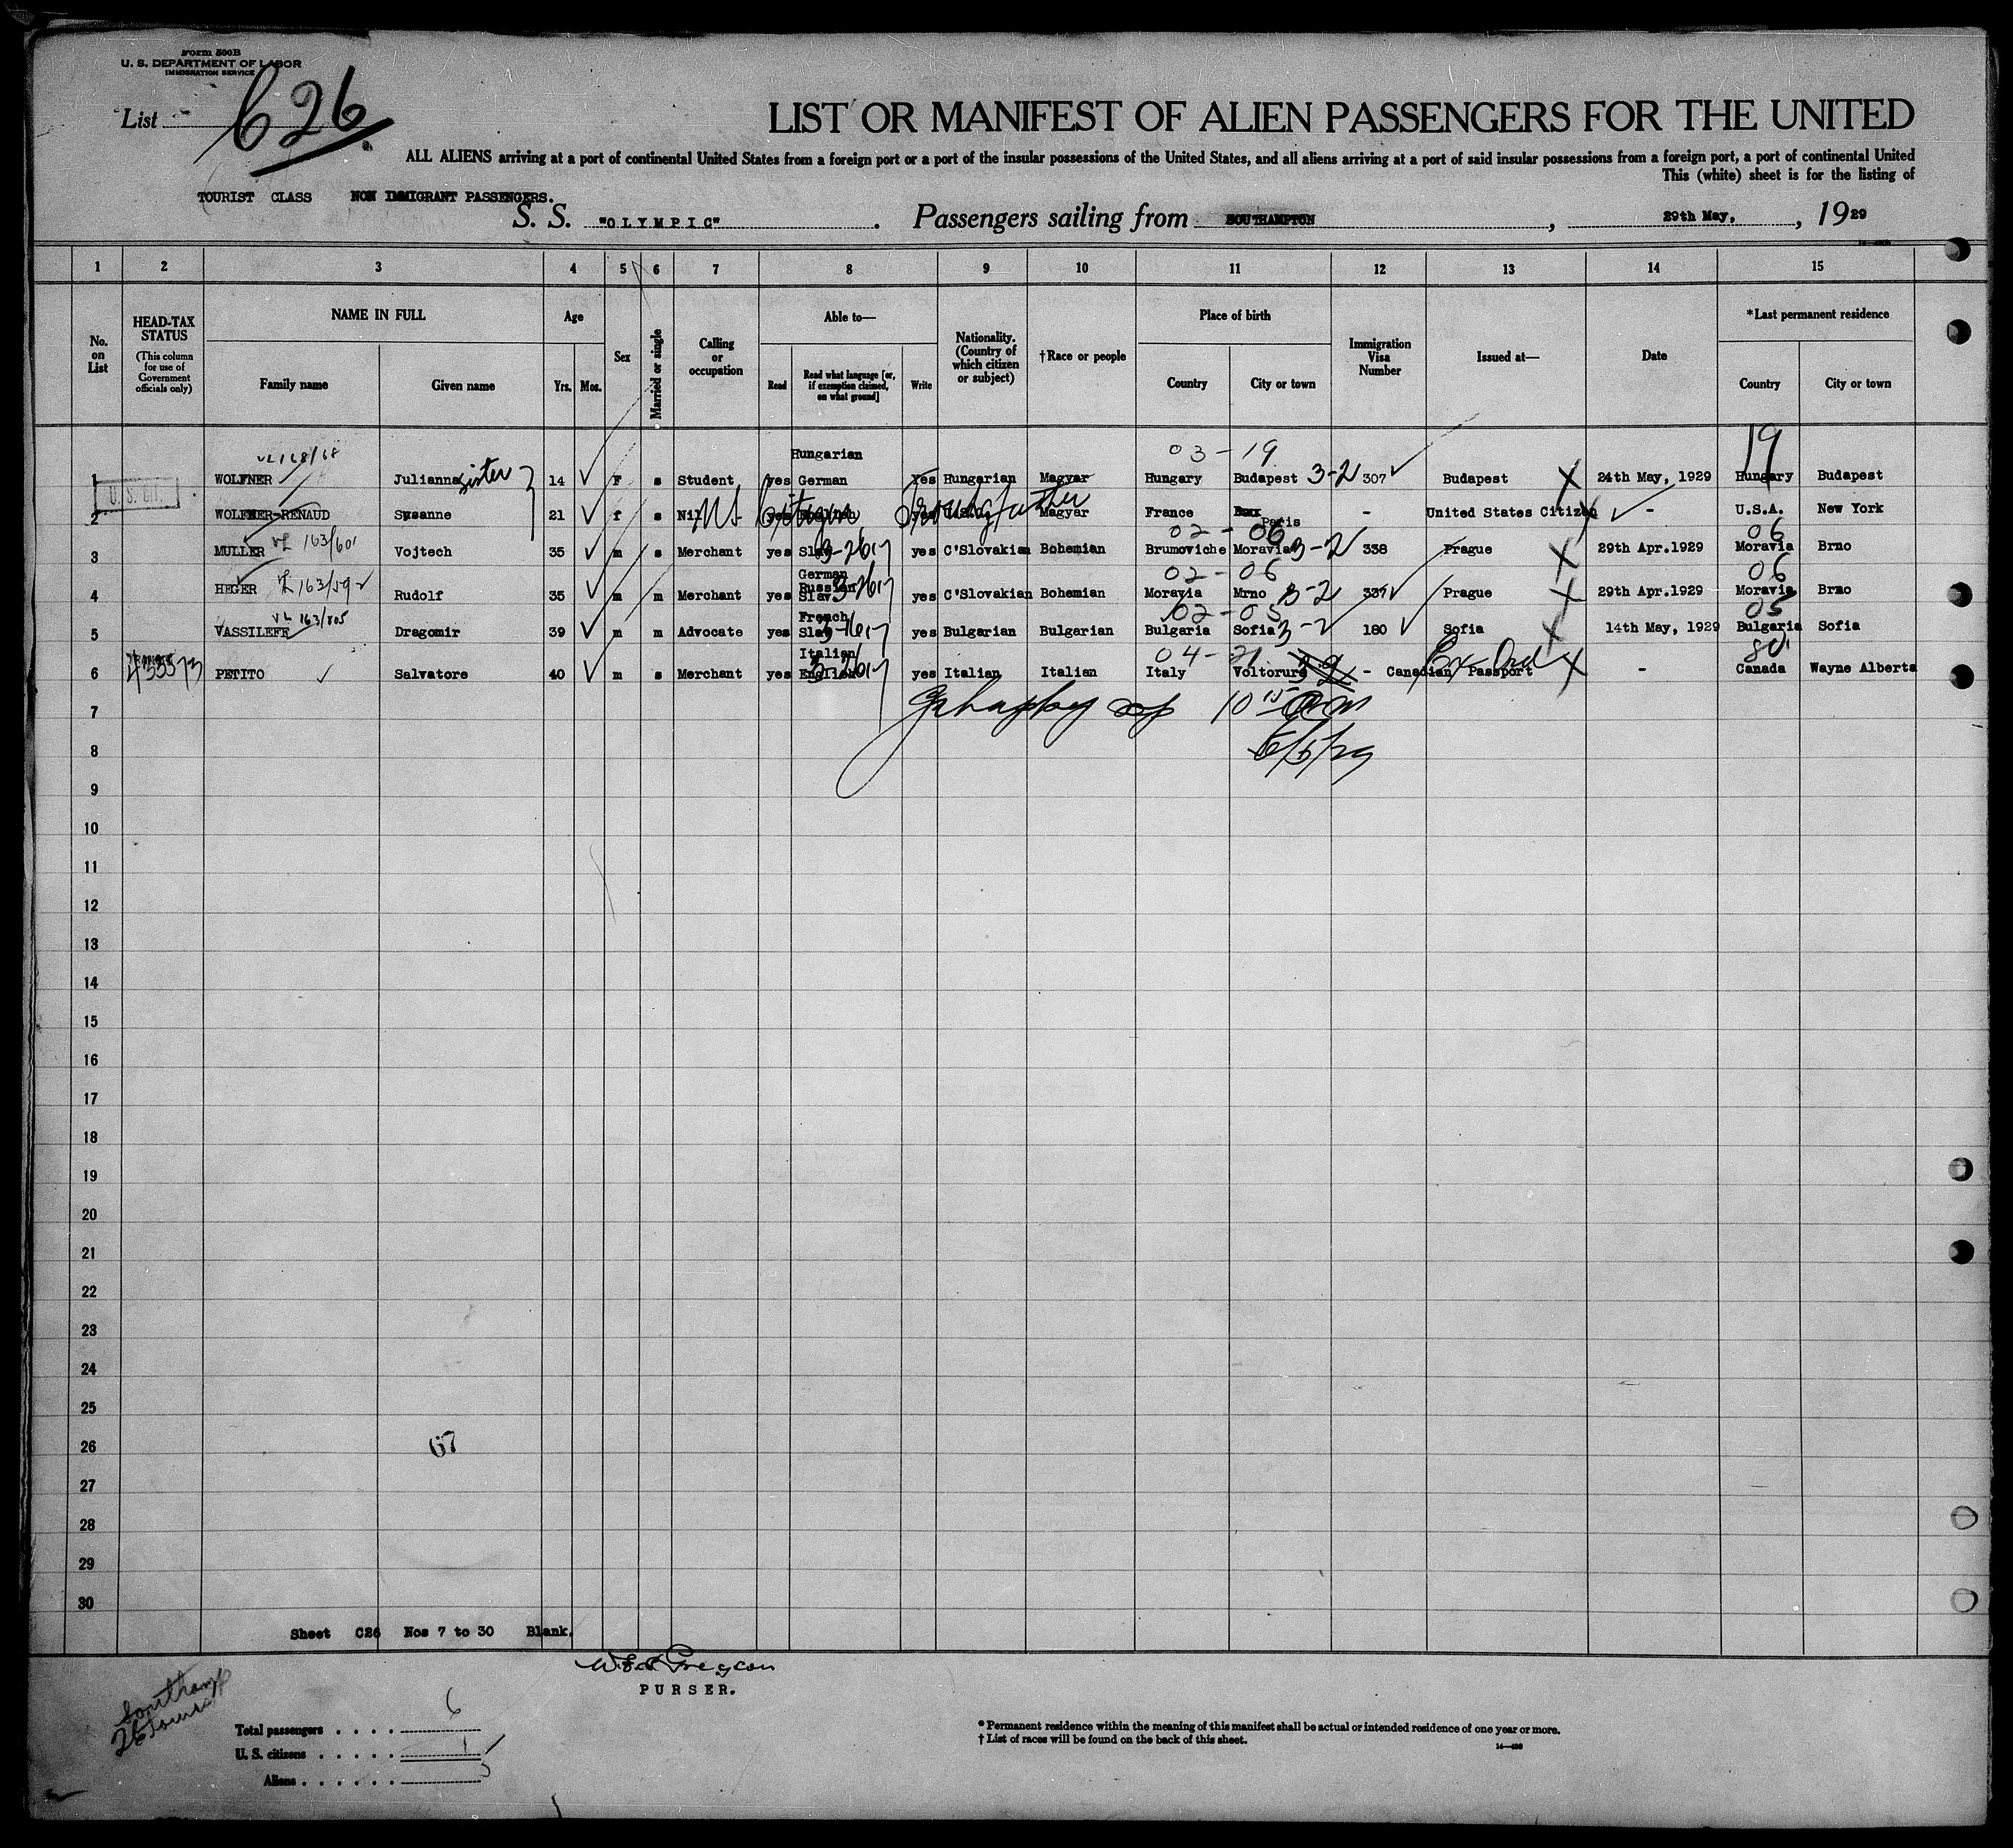 Form 500B
U. S. DEPARTMENT OF LABOR
IMMIGRATION SERVICE
List C26
LIST OR MANIFEST OF ALIEN PASSENGERS FOR THE UNITED
ALL ALIENS arriving at a port of continental United States from a foreign port or a port of the insular possessions of the United States, and all aliens arriving at a port of said insular possessions from a foreign port, a port of continental United
This (white) sheet is for the listing of
TOURIST CLASS NON IMMIGRANT PASSENGERS.
S. S. "OLYMPIC". Passengers sailing from SOUTHAMPTON, 29th May, , 1929
1 2 3 4 5 6 7 8 9 10 11 12 13 14 15
No. on List
HEAD-TAX STATUS (This column for use of Government officials only)
NAME IN FULL
Family name Given name
Age
Yrs. Mos.
Sex
Married or single
Calling or occupation
Able to—
Read Read what language [or, if exemption claimed, on what ground] Write
Nationality. (Country of which citizen or subject)
†Race or people
Place of birth
Country City or town
Immigration Visa Number
Issued at—
Date
*Last permanent residence
Country City or town
VL 168/68 Hungarian 03-19 19
1 WOLFNER Julianna sister 14 F s Student yes German Yes Hungarian Magyar Hungary Budapest 3-2 307 Budapest X 24th May, 1929 Hungary Budapest
U. S. CIT.
2 WOLFNER-RENAUD Susanne 21 f s Nil Magyar France Paris - United States Citizen - U.S.A. New York
02-06 06
3 MULLER VL 163/601 Vojtech 35 m s Merchant yes Slav yes C'Slovakian Bohemian Brumoviche Moravia 3-2 338 Prague X 29th Apr.1929 Moravia Brno
German 02-06 06
Russian
4 HEGER 163/592 Rudolf 35 m m Merchant yes Slav yes C'Slovakian Bohemian Moravia Mrno 3-2 337 Prague X 29th Apr.1929 Moravia Brno
VL 163/805 French 02-05 05
5 VASSILEFF Dragomir 39 m m Advocate yes Slav yes Bulgarian Bulgarian Bulgaria Sofia 3-2 180 Sofia X 14th May, 1929 Bulgaria Sofia
Italian 04-21
6 PETITO Salvatore 40 m s Merchant yes English yes Italian Italian Italy Voltorure - Canadian Passport X - Canada Wayne Alberta
7
8
9
10
11
12
13
14
15
16
17
18
19
20
21
22
23
24
25
26 67
27
28
29
30
Sheet C26 Nos 7 to 30 Blank.
PURSER.
Total passengers . . . . 6
U. S. citizens . . . . . 1
Aliens . . . . . . 5
* Permanent residence within the meaning of this manifest shall be actual or intended residence of one year or more.
† List of races will be found on the back of this sheet.